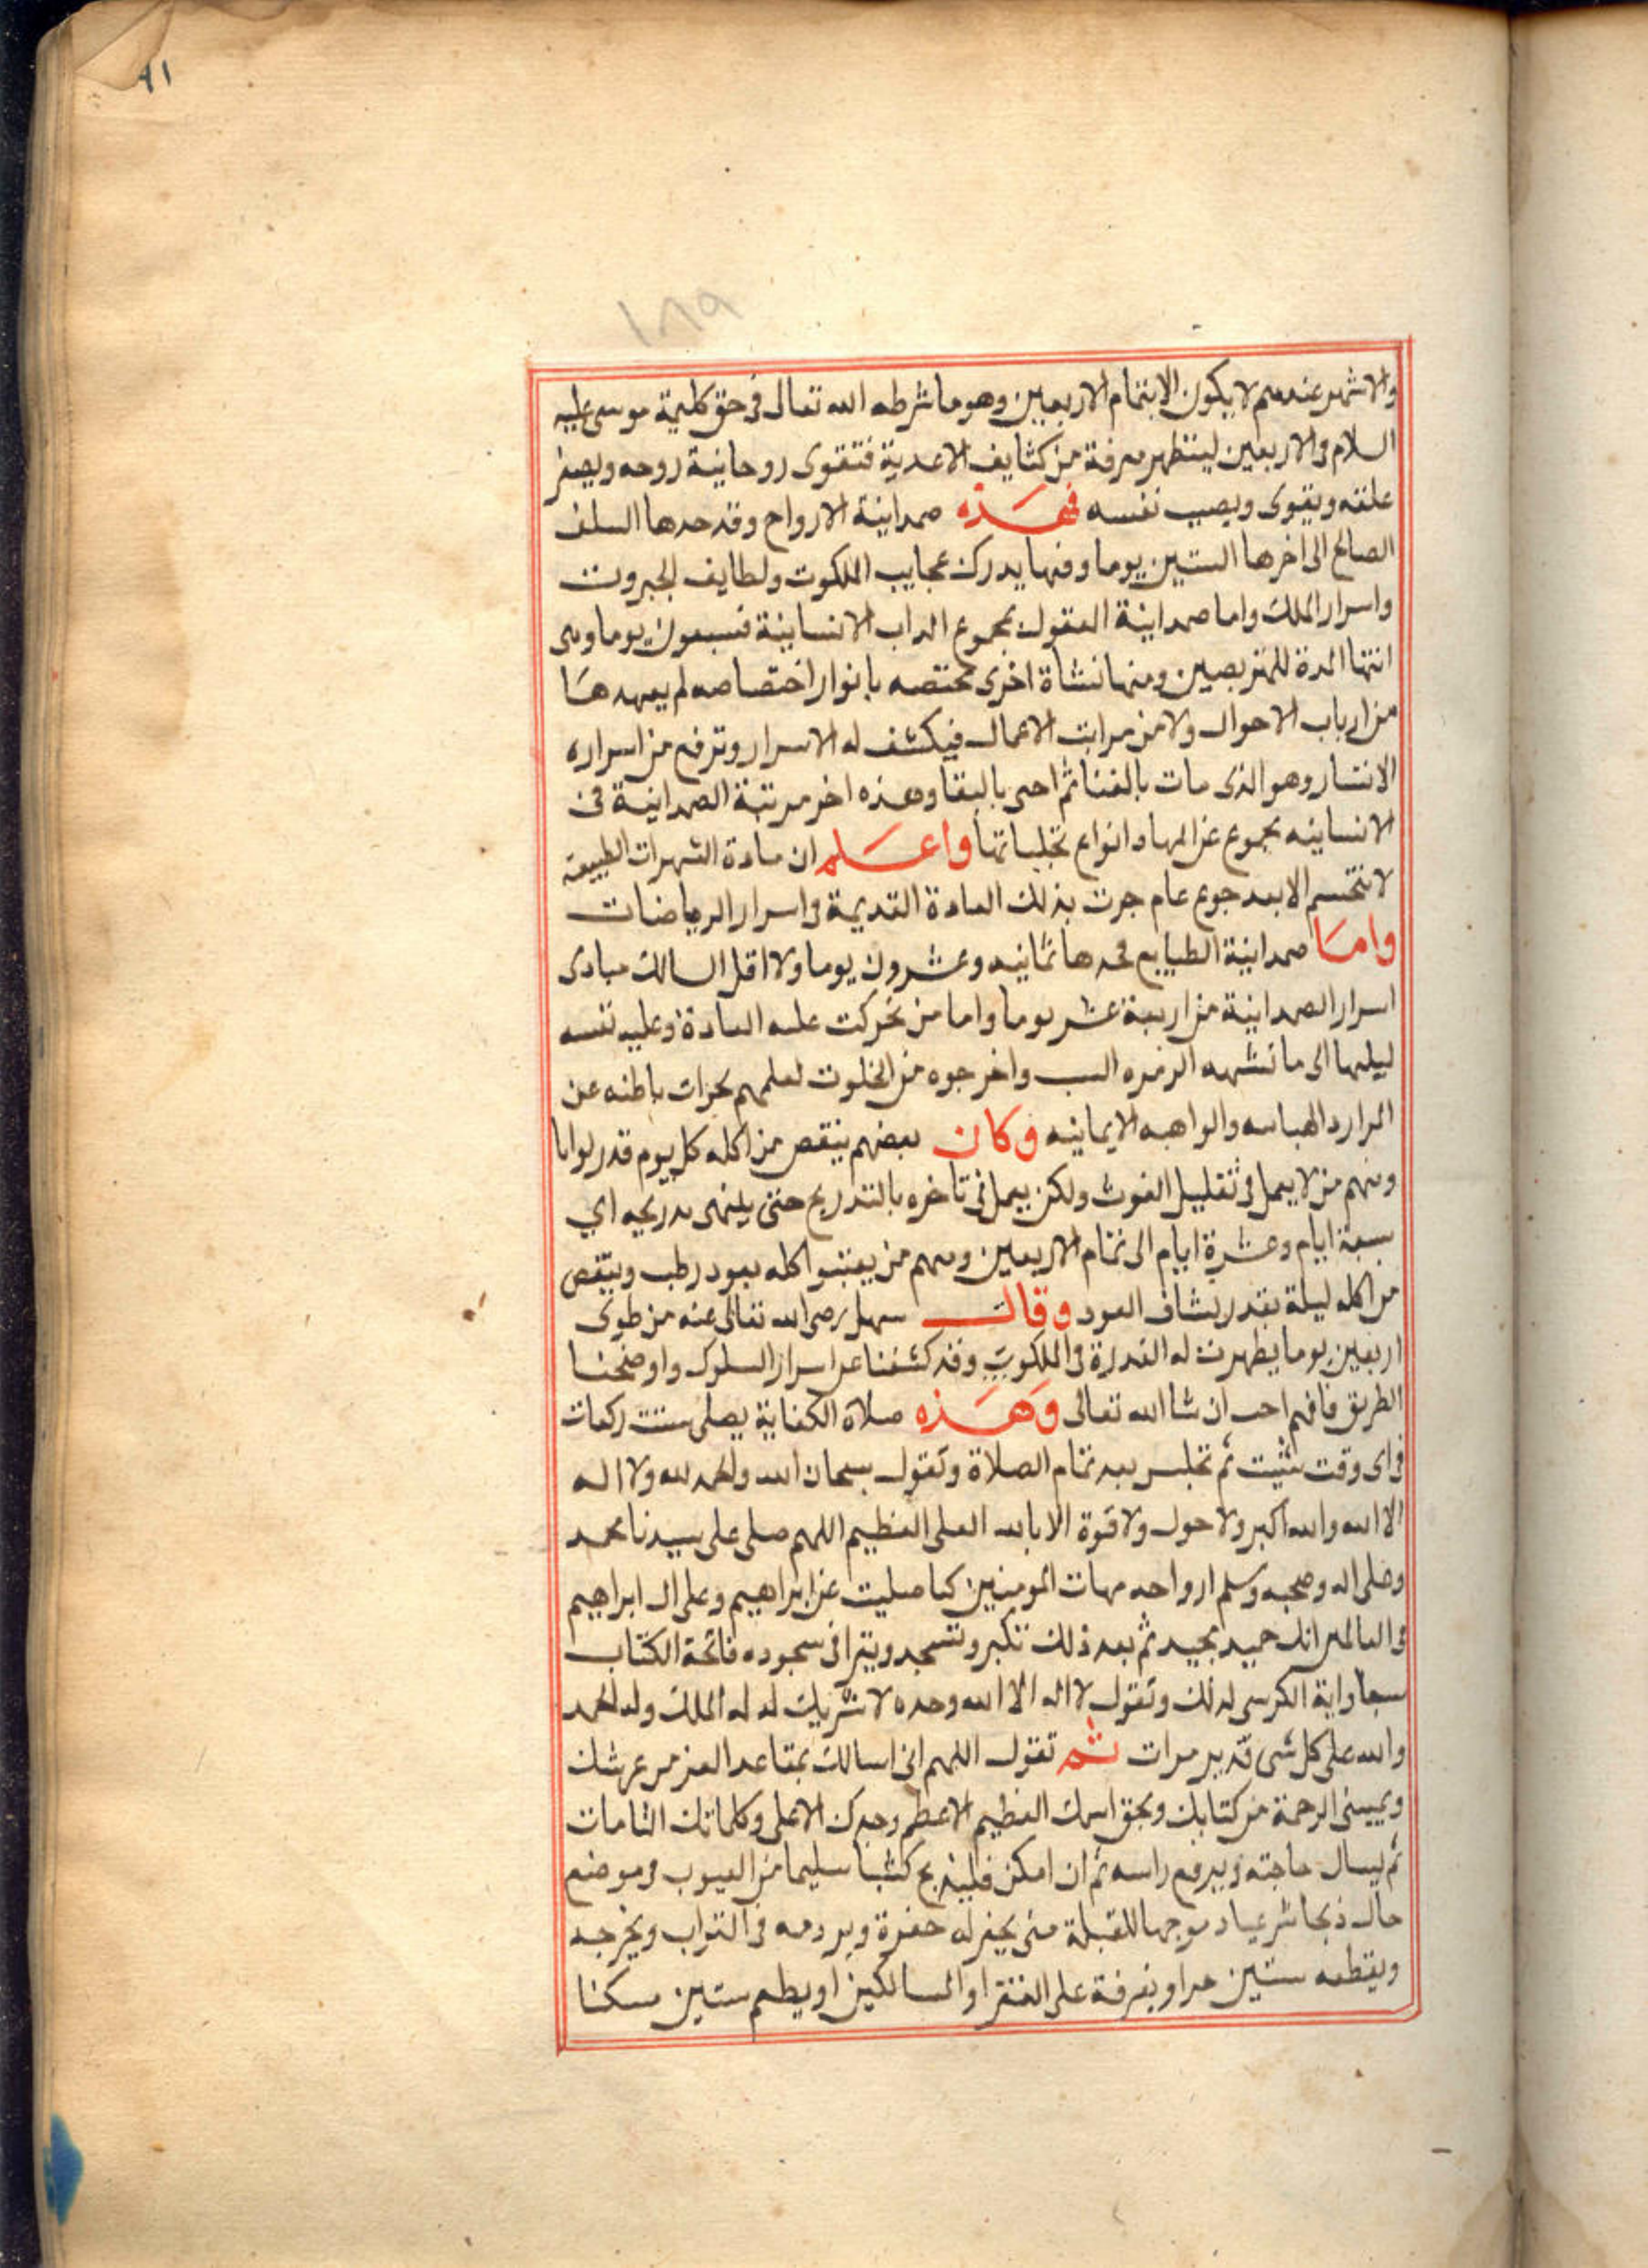 ٩١
١٨٩
والاشهر عندهم لا يكون الا بتمام الاربعين وهو ما شرطه الله تعالى فى حق كليمه موسى عليه
السلام والاربعين ليتطهر من كثايف الاغدية فتقوى روحانية روحه ويصفر
عقله ويقوى ويصيب نفسه فهذه صمدانية الارواح وقد حدها السلف
الصالح الى اخرها الستين يوما وفيها يدرك عجايب الملكوت ولطايف الجبروت
واسرار الملك واما صمدانية العقول بجموع الداب الانسانية فسبعون يوما وهى
انتها المدة للمتربصين ومنها نشاة اخرى مختصه بانوار اختصاصه لم يعهدها
من ارباب الاحوال ولا من مراتب الاعمال فيكشف له الاسرار وترفع من اسراره
الاستار وهو الذى مات بالفنا ثم احى بالبقا وهذه اخر مرتبة الصمدانية فى
الانسانيه بجموع وانواع تجلياتها واعلم ان مادة الشهوات الطبيعه
لا تنحسم الا بعد جوع عام جرت بذلك العادة القديمة فى اسرار الرياضات
واما صمدانية الطبايع فحدها ثمانيه وعشرون يوما ولا اقل السالك مبادى
اسرار الصمدانية من اربعة عشر يوما واما من تحركت عليه العادة وعليه نفسه
ليلها الى ما تشهه الزمره السب واخرجوه من الخلوت لعلمهم باطنه عن
الموارد والواهبه الايمانيه وكان بعضهم ينقص من اكله كل يوم قدر لوايا
ومنهم من لا يعمل فى تقليل القوت ولكن يعمل فى تاخره بالتدريج حتى ينهى تدريجه اي
سبعة ايام وعشرة ايام الى تمام الاربعين ومنهم من يعتبر اكله بعود رطب وينقص
من اكله ليلة بقدر نشاف العود وقال سهل رضى الله تعالى عنه من طوى
اربعين يوما يظهرت له القدرة فى الملكوت وقد كشفنا عن اسرار السلوك واوضحنا
الطريق فافهم احب ان شا الله تعالى وهذه صلاة الكفاية يصلى ست ركعات
فى اى وقت شيت ثم تجلس بعد تمام الصلاة وتقول سبحان الله والحمد لله ولا اله
الا الله والله اكبر ولا حول ولا قوة الا بالله العلى العظيم اللهم صلى على سيدنا محمد
وعلى اله وصحبه وسلم ارواحه مهات المومنين كما صليت على ابراهيم وعلى ال ابراهيم
فى العالمين انك حميد مجيد ثم بعد ذلك تكبر وتسجد ويقرا فى سجوده فاتحة الكتاب
سبعا واية الكرسى لذلك وتقول لا اله الا الله وحده لا شريك له له الملك وله الحمد
والله على كل شى قدير مرات ثم تقول اللهم انى اسالك بمقاعد العز من عرشك
ويمينى الرحمة من كتابك وبحق اسمك العظيم الاعظم وجدك الاعلى وكلماتك التامات
ثم يسال حاجته ويرفع راسه ثم ان امكن فليذبح كبشا سليما من العيوب فى موضع
خال ذبحا شرعيا موجها للقبلة متى يحفر له حفرة ويردمه فى التراب ويخرجه
ويقطعه ستين جزا ويفرقة على الفقرا والمساكين او يطعم ستين مسكنا